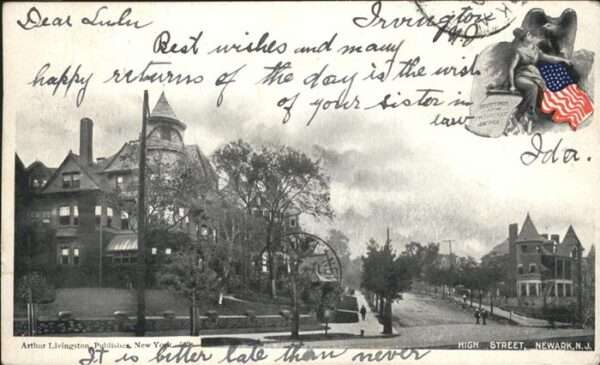 Dear Lulu
Irvington
NJ
Best wishes and many
happy returns of the day is the wish
of your sister in
law
Ida.
GREETINGS
Arthur Livingston, Publisher, New York.
HIGH STREET, NEWARK, N.J.
It is bitter late than never